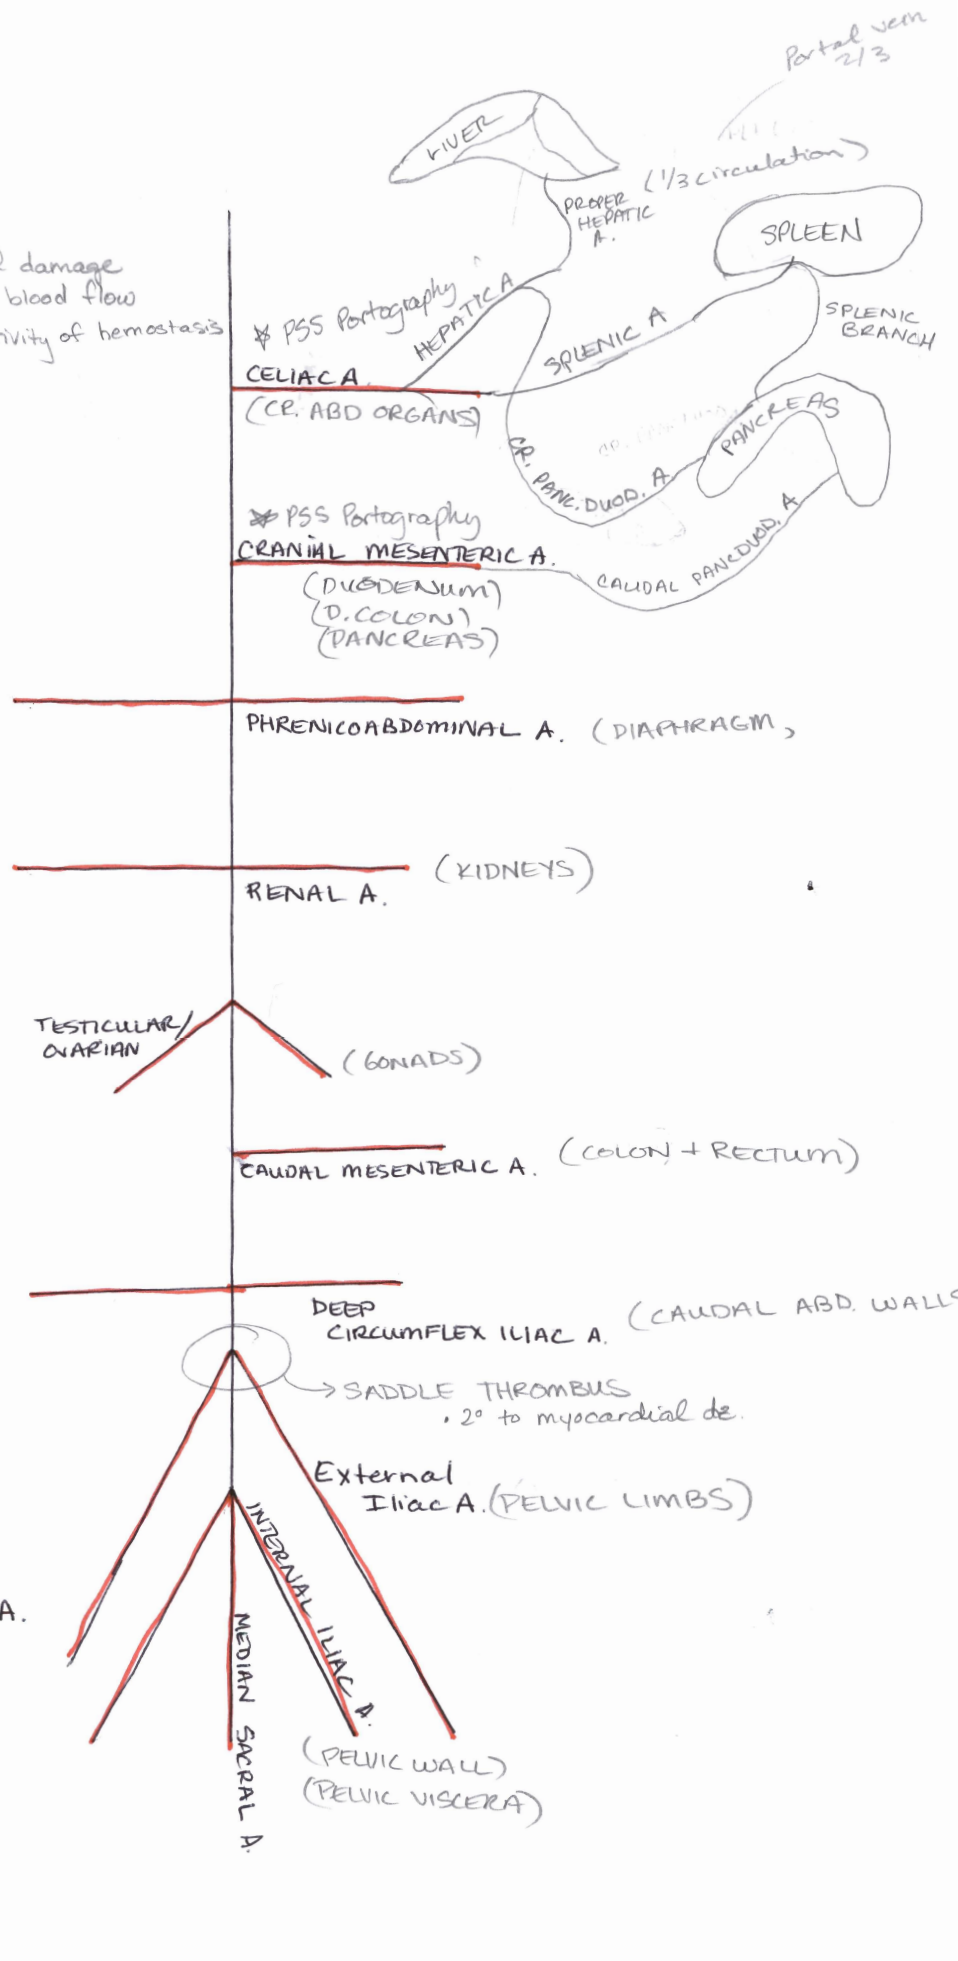 Portal vein
2/3
LIVER
(1/3 circulation)
PROPER
HEPATIC
A.
SPLEEN
damage
blood flow
ivity of hemostasis
PSS Portography
HEPATIC A
SPLENIC A
SPLENIC
BRANCH
CELIAC A.
(CR. ABD ORGANS)
PANCREAS
CR. PANC. DUOD. A
PSS Portography
CRANIAL MESENTERIC A.
CAUDAL PANCDUOD. A
(DUODENUM)
(D. COLON)
(PANCREAS)
PHRENICOABDOMINAL A. (DIAPHRAGM,
(KIDNEYS)
RENAL A.
TESTICULAR/
OVARIAN
(GONADS)
(COLON + RECTUM)
CAUDAL MESENTERIC A.
DEEP
CIRCUMFLEX ILIAC A.
(CAUDAL ABD. WALLS
SADDLE THROMBUS
• 2° to myocardial dz.
External
Iliac A. (PELVIC LIMBS)
INTERNAL ILIAC A.
A.
MEDIAN SACRAL A.
(PELVIC WALL)
(PELVIC VISCERA)